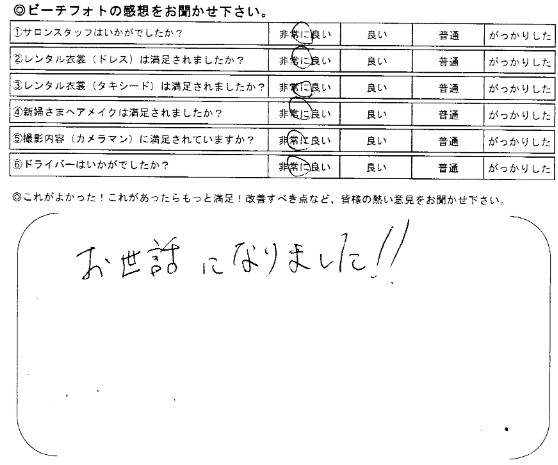 ◎ビーチフォトの感想をお聞かせ下さい。
①サロンスタッフはいかがでしたか？ 非常に良い 良い 普通 がっかりした
②レンタル衣裳（ドレス）は満足されましたか？ 非常に良い 良い 普通 がっかりした
③レンタル衣裳（タキシード）は満足されましたか？ 非常に良い 良い 普通 がっかりした
④新婦さまヘアメイクは満足されましたか？ 非常に良い 良い 普通 がっかりした
⑤撮影内容（カメラマン）に満足されていますか？ 非常に良い 良い 普通 がっかりした
⑥ドライバーはいかがでしたか？ 非常に良い 良い 普通 がっかりした
◎これがよかった！これがあったらもっと満足！改善すべき点など、皆様の熱い意見をお聞かせ下さい。
お世話になりました!!